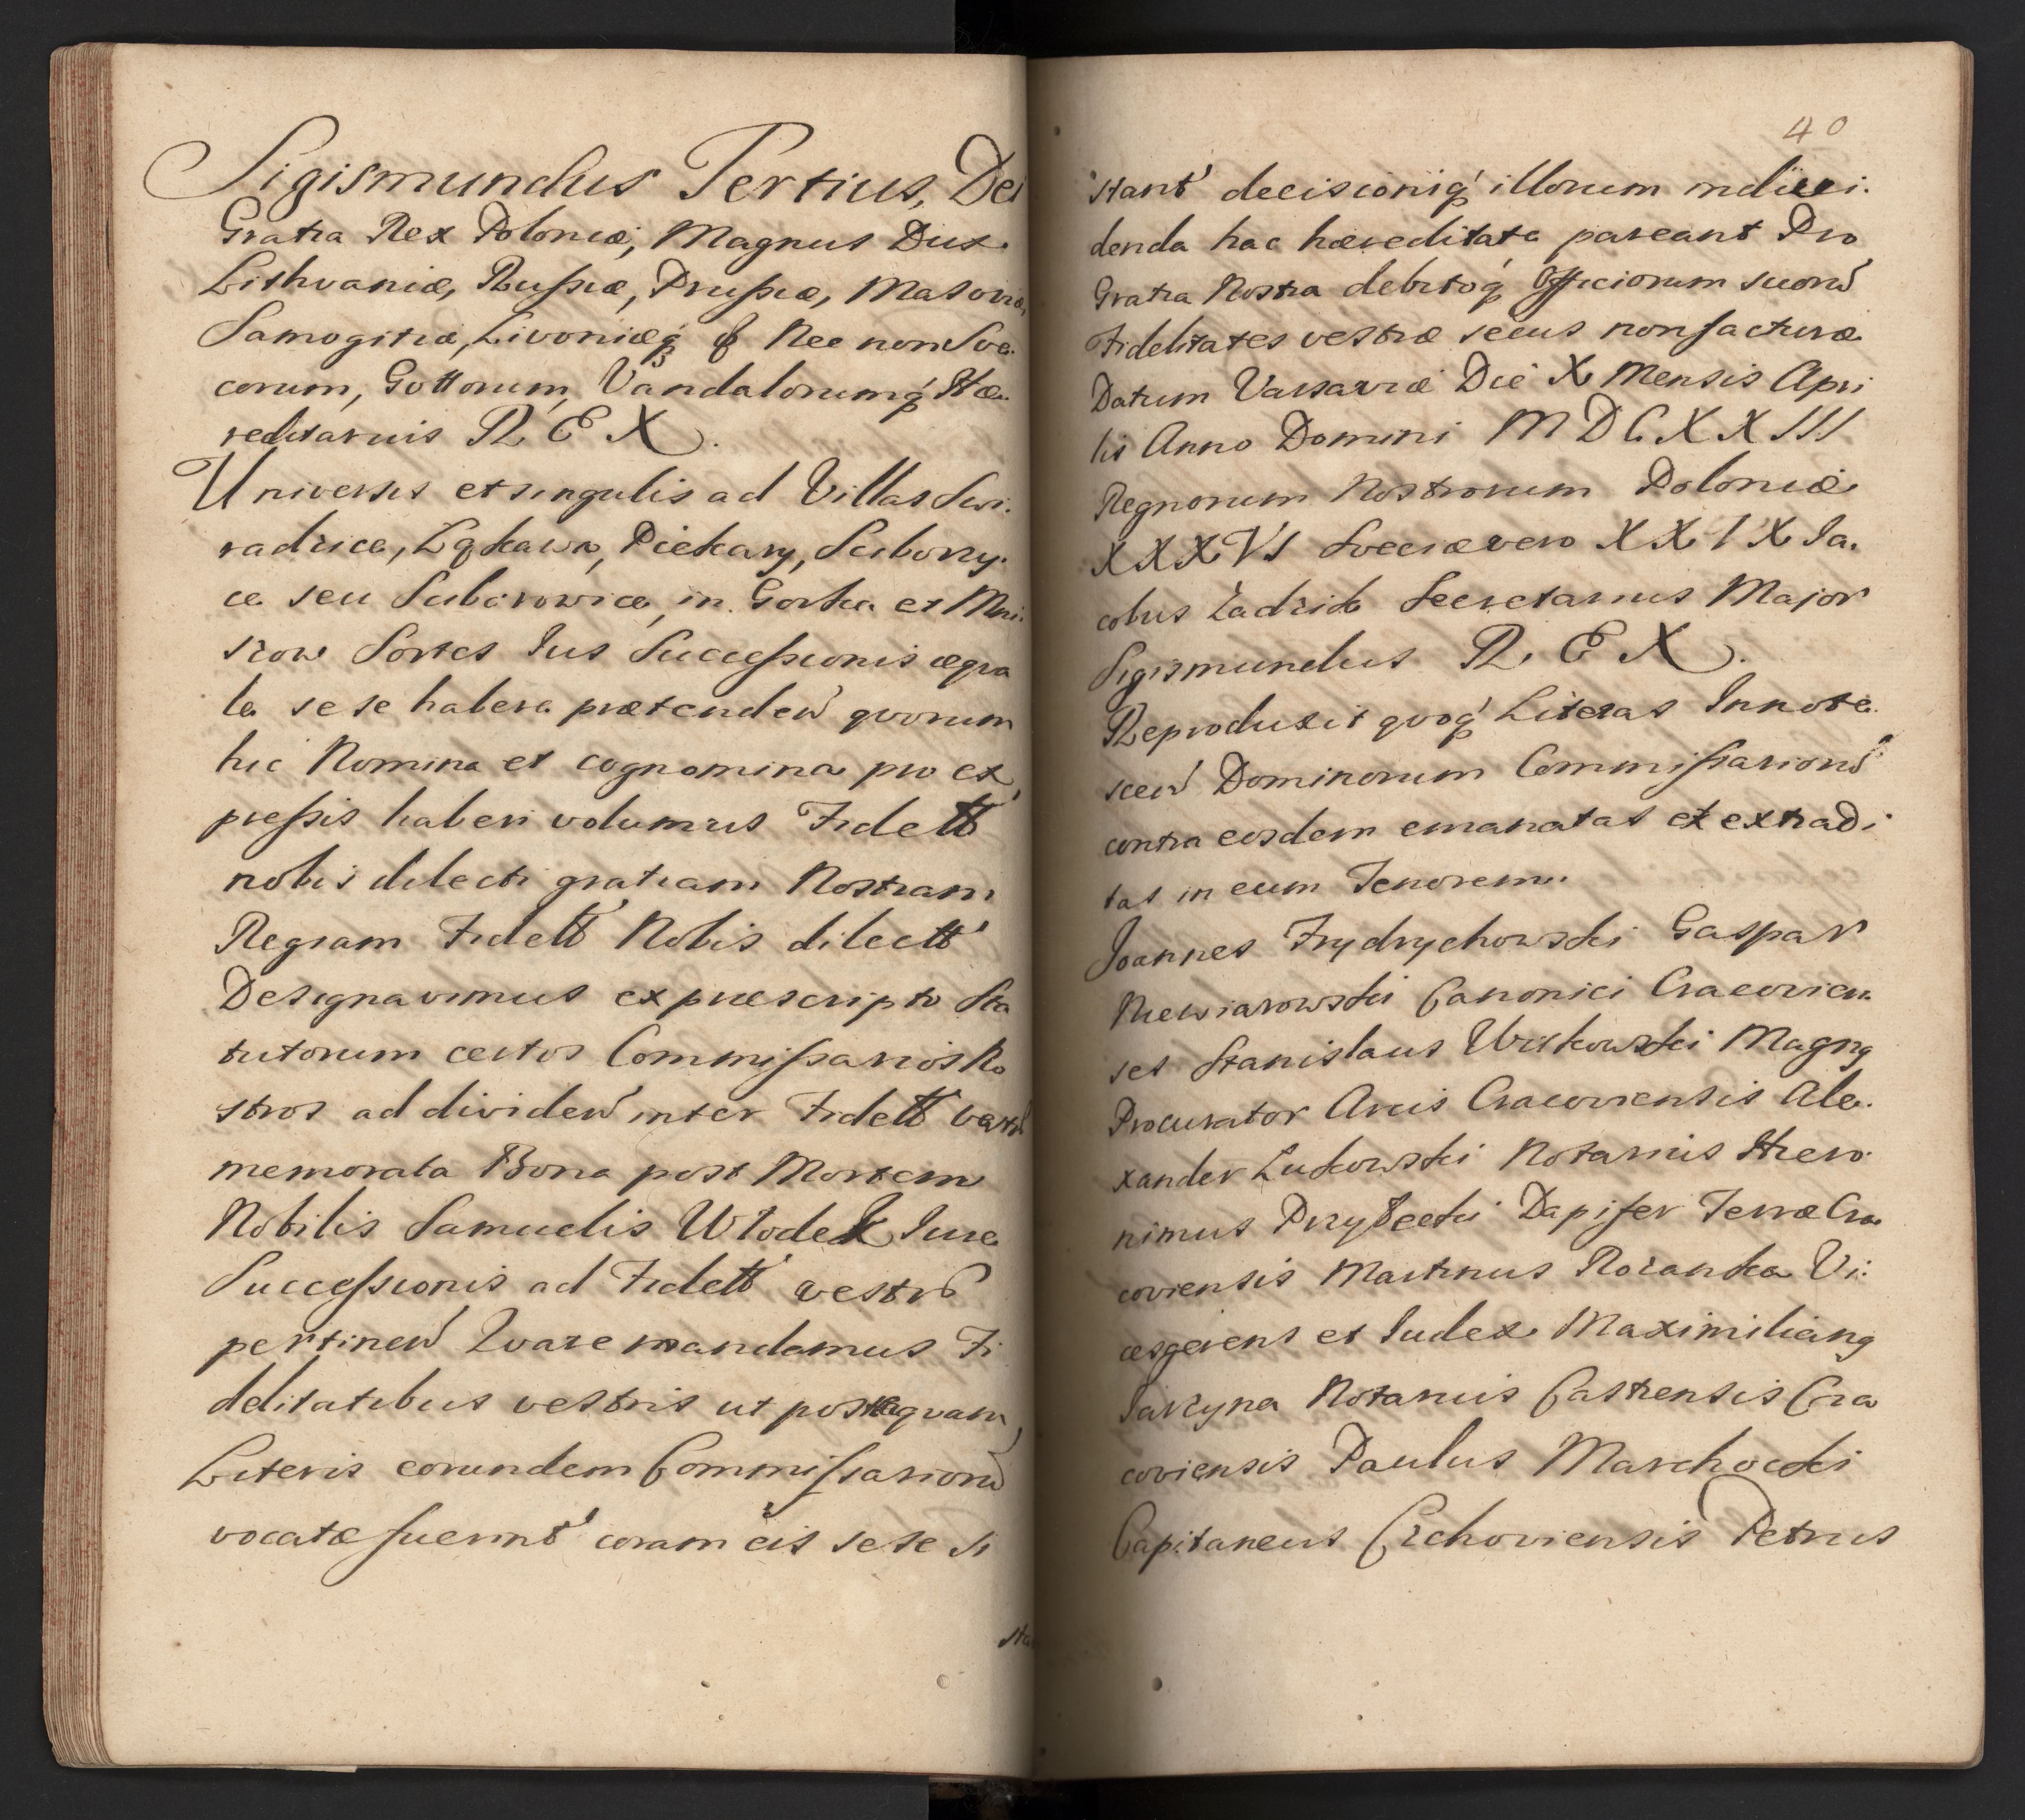 Sigismundus Tertius, Dei
Gratia Rex Poloniæ, Magnus Dux
Lithvaniæ, Rußiæ, Prußiæ, Masoviæ,
Samogitiæ, Livoniæq́ & Nec non Sve.
corum, Gottorum, Vandalorumq́ Hæ.
reditarius R E X.
Universis et singulis ad Villas Swi.
radzice, Łąkawa, Piekary, Suborzy.
ce seu Suborowice, in Gorka et Mni.
szow Sortes Ius Succeßionis æqva
le sese habere prætenden̄ qvorum
hic Nomina et cognomina pro ex
preßis haberi volumus Fidelt̄
nobis dilecti gratiam Nostram
Regiam Fidelt̄ Nobis dilectt̄
Designavimus ex præscripto Sta
tutorum certos Commißarios No
stros ad dividen̄ inter Fidelt̄ vestr̄
memorata Bona post Mortem
Nobilis Samuelis Włodek Iure
Succeßionis ad Fidelt̄ vestr̄
pertinen̄ Qvare mandamus Fi
delitatibus vestris ut posteaqvam
Literis eorundem Commißarior̄
vocatæ fuerint́ coram eis sese si
sta
40
stant́ decisioniq́ illorum in divi.
denda hac hæreditate pareant Pro
Gratia Nostra debitoq́ Officiorum suor̄
Fidelitates vestræ secus non facturæ
Datum Varsaviæ Die X Mensis Apri
lis Anno Domini M D C X X I I I
Regnorum Nostrorum Poloniæ
X X X V I Sveciæ vero X X I X Ia.
cobus Zadzik Secretarius Major
Sigismundus R E X.
Reproduxit qvoq́ Literas Innote.
scen̄ Dominorum Commißarior̄
contra eosdem emanatas et extradi
tas in eum Tenorem.
Joannes Frydrychowski Gaspar
Niewiarowski Canonici Cracovien
ses Stanislaus Witkowski Magnꝗ
Procurator Arcis Cracoviensis Ale.
xander Łukowski Notarius Hiero
nimus Przyłecki Dapifer Terræ Cra
coviensis Martinus Rożanka Vi:
cesgerens et Iudex Maximilianꝗ
Iarzyna Notarius Castrensis Cra
coviensis Paulus Marchocki
Capitaneus Czchoviensis Petrus